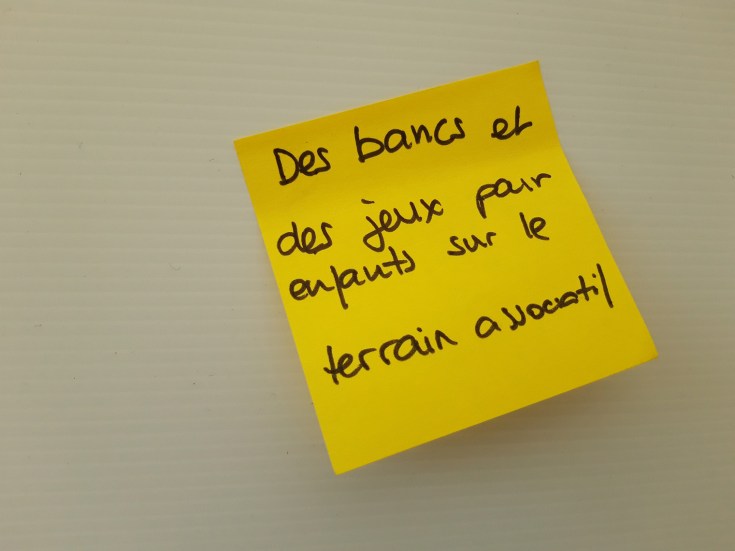 Des bancs et
des jeux pour
enfants sur le
terrain associatif